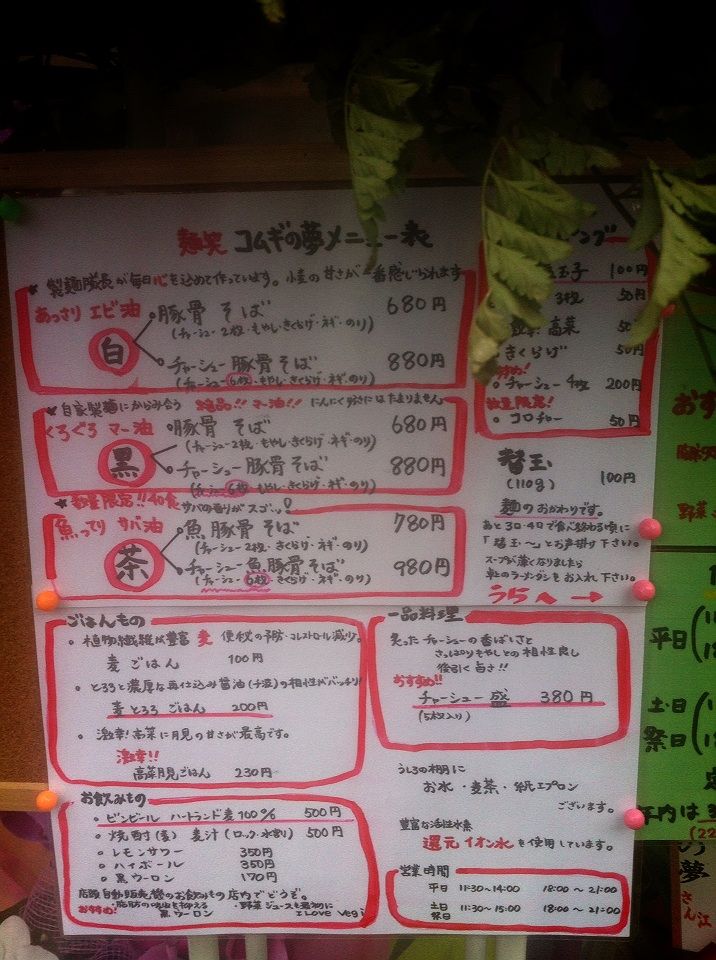 麺笑 コムギの夢メニュー表
★ 製麺隊長が毎日心を込めて作っています。小麦の甘さが一番感じられます
あっさり エビ油
白
豚骨 そば 680円
(チャーシュー2枚・もやし・きくらげ・ネギ・のり)
チャーシュー 豚骨そば 880円
(チャーシュー6枚・もやし・きくらげ・ネギ・のり)
★ 自家製麺にからみ合う 絶品!! マー油!! にんにく好きにはたまりません
くろぐろ マー油
黒
豚骨 そば 680円
(チャーシュー2枚・もやし・きくらげ・ネギ・のり)
チャーシュー 豚骨そば 880円
(チャーシュー6枚・もやし・きくらげ・ネギ・のり)
★ 数量限定!! 和食 サバの香りがスゴッ!
魚ってり サバ油
茶
魚 豚骨 そば 780円
(チャーシュー2枚・きくらげ・ネギ・のり)
チャーシュー 魚豚骨そば 980円
(チャーシュー6枚・きくらげ・ネギ・のり)
ング
玉子 100円
3枚 50円
高菜 50
きくらげ 50円
チャーシュー 4枚 200円
数量限定!
コロチャー 50円
替玉
(110g) 100円
麺のおかわりです。
あと30・40で食べ終わる頃に
「替玉〜」とお声掛け下さい。
スープが薄くなりましたら
卓上のラーメンダシをお入れ下さい。
うらへ →
ごはんもの
植物繊維が豊富 麦 便秘の予防・コレストロール減少。
麦ごはん 100円
とろろと濃厚な再仕込み醤油の相性がバッチリ!
麦とろろ ごはん 200円
激辛!高菜に月見の甘さが最高です。
激辛!!
高菜月見ごはん 230円
一品料理
炙ったチャーシューの香ばしさと
さっぱりもやしとの相性良し
後引く旨さ!!
おすすめ!!
チャーシュー 盛 380円
(5枚入り)
お飲みもの
ビンビール ハートランド麦100% 500円
焼酎(麦) 麦汁(ロック・水割) 500円
レモンサワー 350円
ハイボール 350円
黒ウーロン 170円
店頭自動販売機のお飲みもの店内でどうぞ。
おすすめ!
・脂肪の吸収を抑える
黒ウーロン
・野菜ジュースも最初に
I LOVE Vegi
うしろの棚に
お水・麦茶・紙エプロン
ございます。
豊富な活性水素
還元イオン水を使用しています。
営業時間
平日 11:30〜14:00 18:00〜21:00
土日
祭日 11:30〜15:00 18:00〜21:00
おす
野菜
平日
土・日
祭日
年内は
(22
の夢
さん江